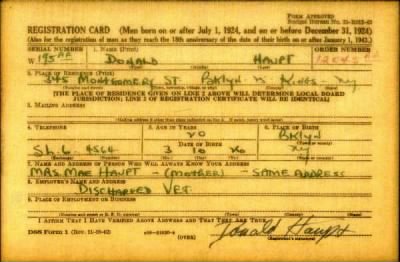 FORM APPROVED
REGISTRATION CARD — (Men born on or after July 1, 1924, and on or before December 31, 1924)
(Also for the registration of men as they reach the 18th anniversary of the date of their birth on or after January 1, 1943.)
SERIAL NUMBER 1. NAME (Print) ORDER NUMBER
W 195 DONALD HAUPT
(First) (Middle) (Last)
2. PLACE OF RESIDENCE (Print)
345 MONTGOMERY ST. BKLYN KINGS NY
[THE PLACE OF RESIDENCE GIVEN ON LINE 2 ABOVE WILL DETERMINE LOCAL BOARD
JURISDICTION; LINE 2 OF REGISTRATION CERTIFICATE WILL BE IDENTICAL]
3. MAILING ADDRESS
4. TELEPHONE 5. AGE IN YEARS 6. PLACE OF BIRTH
20 BKLYN
DATE OF BIRTH
SL. 6 4564 3 10 NY
7. NAME AND ADDRESS OF PERSON WHO WILL ALWAYS KNOW YOUR ADDRESS
MRS MAE HAUPT — (MOTHER) — SAME ADDRESS
8. EMPLOYER'S NAME AND ADDRESS
DISCHARGED VET.
9. PLACE OF EMPLOYMENT OR BUSINESS
I AFFIRM THAT I HAVE VERIFIED ABOVE ANSWERS AND THAT THEY ARE TRUE.
DSS Form 1 (OVER) Donald Haupt
(Registrant's signature)